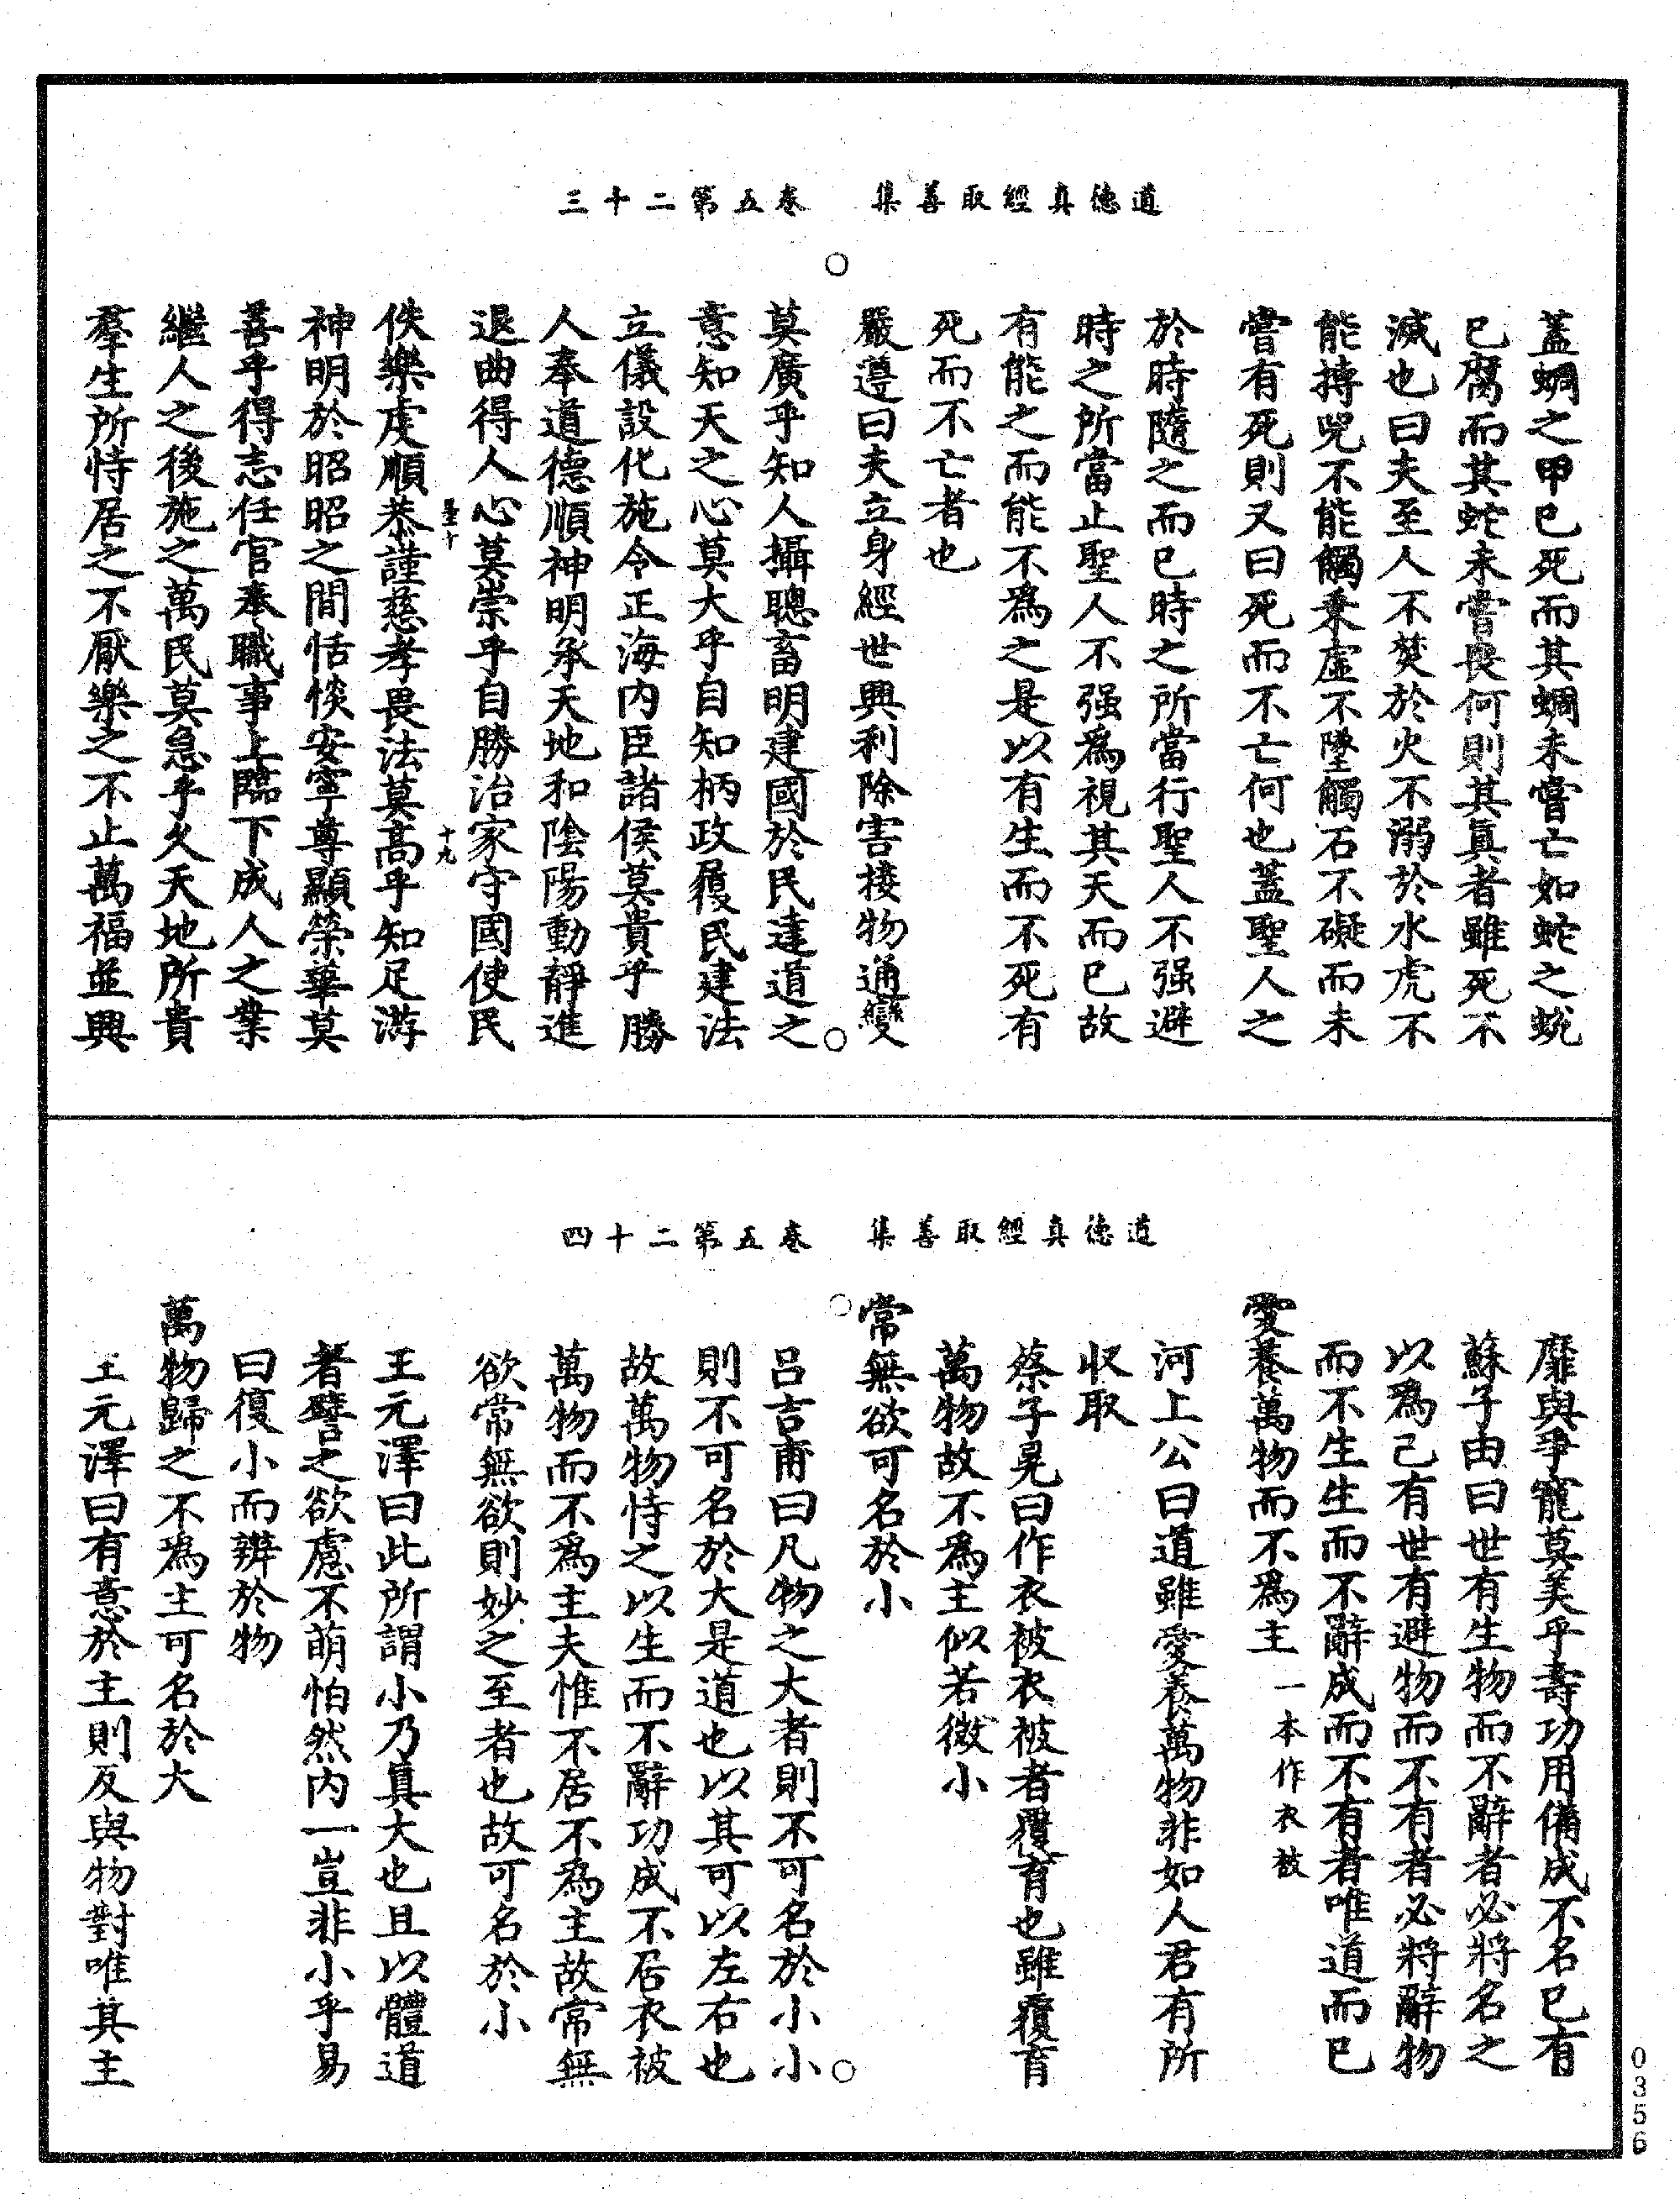 道德真經取善集　卷五第二十三
蓋蜩之甲已死而其蜩未嘗亡如蛇之蛻
已腐而其蛇未嘗畏何則其真者雖死不
滅也曰夫至人不焚於火不溺於水虎不
能搏兕不能觸乘虛不墜觸石不礙而未
嘗有死則又曰死而不亡何也蓋聖人之
於時隨之而已時之所當行聖人不强避
時之所當止聖人不强為視其天而已故
有能之而能不為之是以有生而不死有
死而不亡者也
嚴遵曰夫立身經世興利除害接物通變
莫廣乎知人攝聰畜明建國於民達道之
意知天之心莫大乎自知柄政履民建法
立儀設化施令正海內臣諸侯莫貴乎勝
人奉道德順神明承天地和陰陽動靜進
退曲得人心莫崇乎自勝治家守國使民
十九
佚樂虔順恭謹慈孝畏法莫高乎知足游
神明於昭昭之間恬惔安寧尊顯榮華莫
善乎得志任官奉職事上臨下成人之業
繼人之後施之萬民莫急乎久天地所貴
羣生所恃居之不厭樂之不止萬福並興
道德真經取善集　卷五第二十四
靡與爭寵莫美乎壽功用備成不名已有
蘇子由曰世有生物而不辭者必將名之
以為己有世有避物而不有者必將辭物
而不生生而不辭成而不有者唯道而已
愛養萬物而不為主一本作衣被
河上公曰道雖愛養萬物非如人君有所
收取
蔡子晃曰作衣被衣被者覆育也雖覆育
萬物故不為主似若微小
常無欲可名於小
呂吉甫曰凡物之大者則不可名於小小
則不可名於大是道也以其可以左右也
故萬物恃之以生而不辭功成不居衣被
萬物而不為主夫惟不居不為主故常無
欲常無欲則妙之至者也故可名於小
王元澤曰此所謂小乃真大也且以體道
者譬之欲慮不萌怕然內一豈非小乎易
曰復小而辨於物
萬物歸之不為主可名於大
王元澤曰有意於主則反與物對唯其主
0356